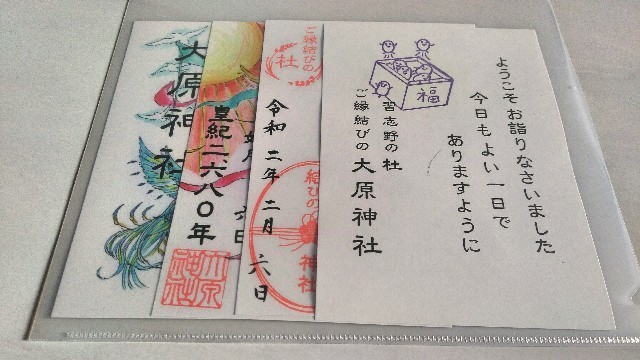 ようこそ お詣りなさいました
今日もよい一日で
ありますように
福
習志野の杜
ご縁結びの 大原神社
ご縁結びの
杜
令和 二年 二月 六日
結びの
神社
皇紀二六八〇年
六日
大原神社
大原神社